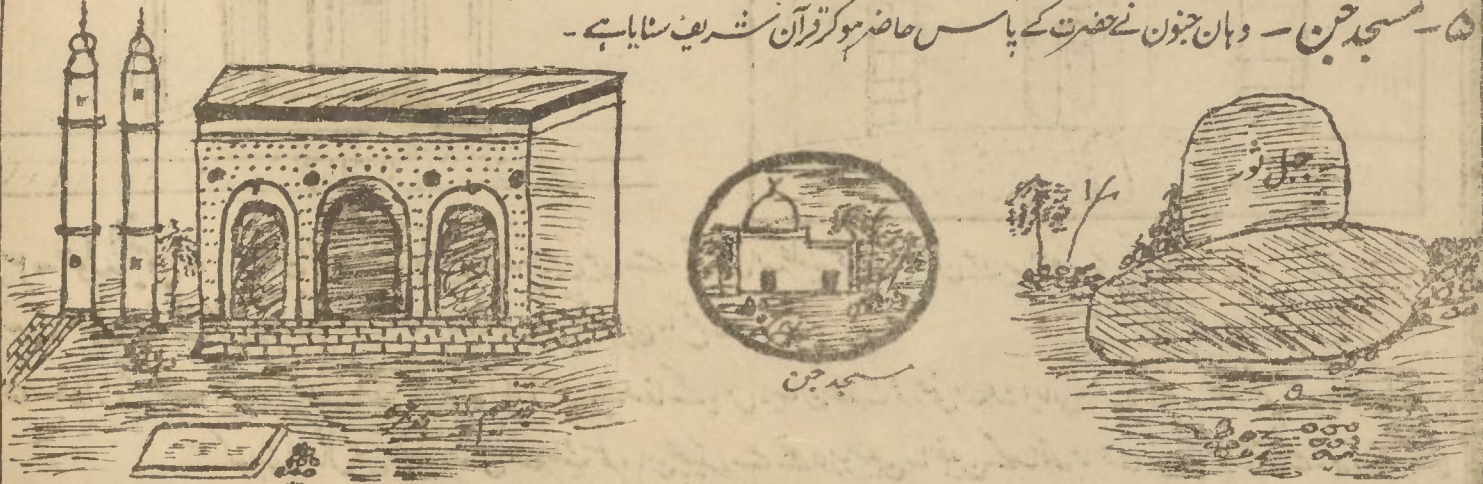 ۵ - مسجد جن - وہان جنون نے حضرت کے پاس حاضر ہوکر قرآن شریف سنایا ہے -
جبل ثور
مسجد جن